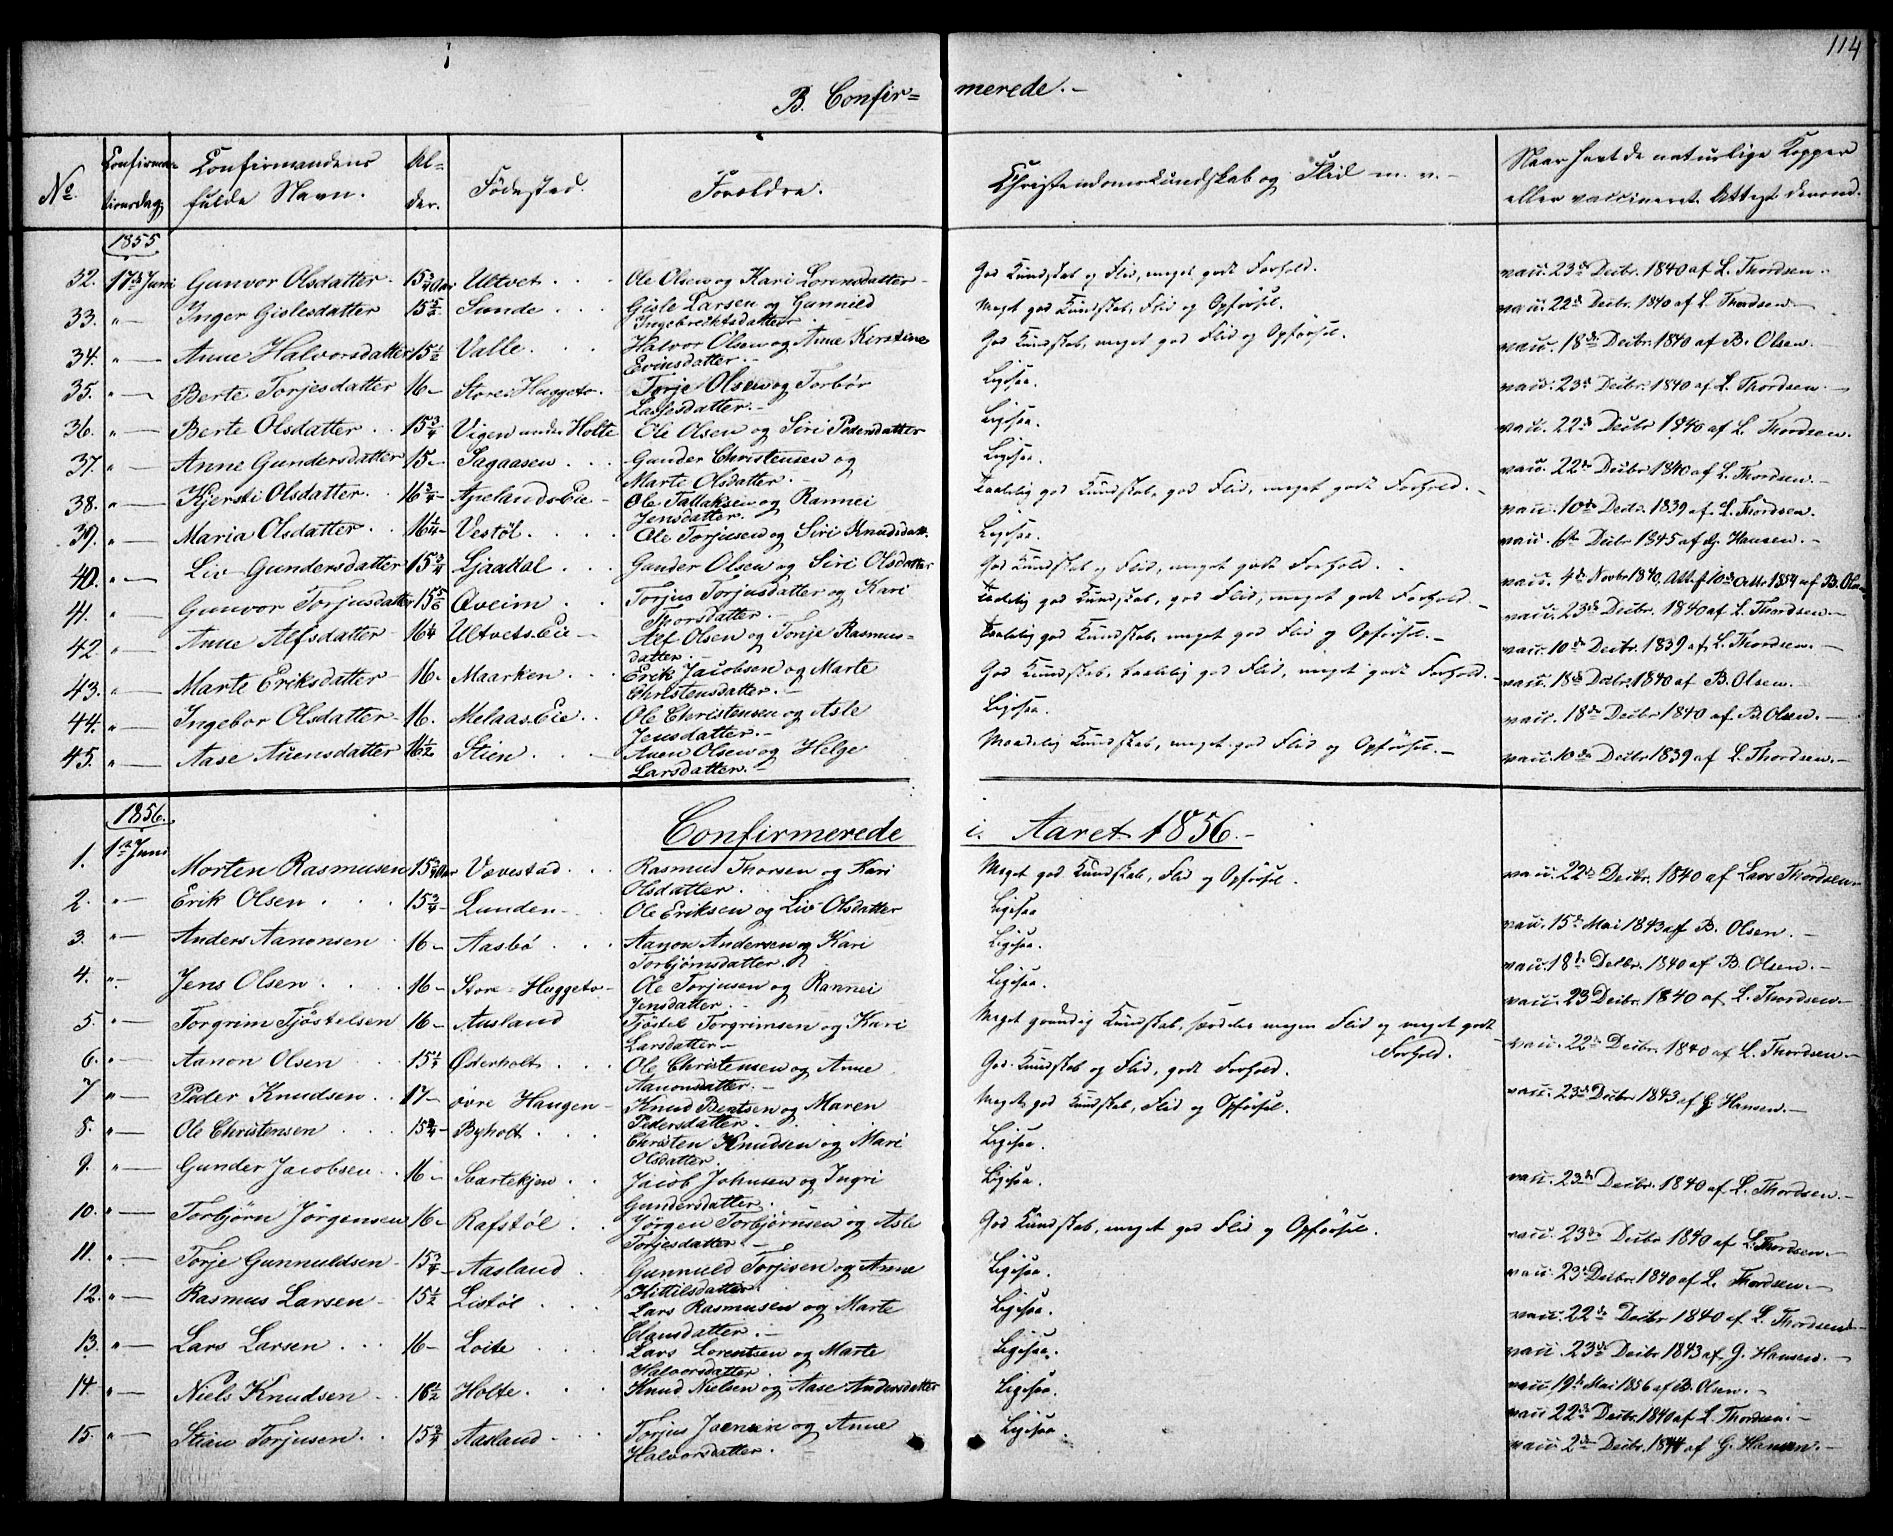 114
B. Confir= merede.-
No. Confirma- tionsdag Confirmandens fulde Navn. Al- der. Fødested. Forældre. Christendomskundskab og Flid m. v. - Naar havt de naturlige Kopper eller vaccineret. Attest derom.
1855
32. 17de Juni Gunvor Olsdatter 15 3/4 Aar Ultvet. Ole Olsen og Kari Lorensdatter God Kundskab og Flid, meget godt Forhold. vacc. 23de Decbr. 1840 af L. Thordsen.
33. " Inger Gislesdatter 15 1/2 Sunde Gisle Larsen og Gunnild Meget god Kundskab, Flid og Opførsel. vacc. 22de Decbr. 1840 af L. Thordsen.
Ingebrektsdatter
34. " Anne Halvorsdatter 15 1/2 Valle. Halvor Olsen og Anne Kirstine God Kundskab, meget god Flid og Opførsel. vacc. 18de Decbr. 1840 af B. Olsen.
Evinsdatter.
35. " Berte Torjesdatter 16 Store Huggeto. Torje Olsen og Torbør Ligesaa. vacc. 23de Decbr. 1840 af L. Thordsen.
Lassesdatter.
36. " Berte Olsdatter 15 3/4 Vigen under Holte Ole Olsen og Siri Pedersdatter Ligesaa. vacc. 22de Decbr 1840 af L. Thordsen.
37. " Anne Gundersdatter 15 Sagaasen Gunder Christensen og Ligesaa. vacc. 22de Decbr 1840 af L. Thordsen.
Marte Olsdatter.
38. " Kjersti Olsdatter. 16 3/4 Agelands Eie Ole Tallaksen og Rannei Taalelig god Kundskab, god Flid, meget godt Forhold. vacc. 10de Decbr. 1839 af L. Thordsen.
Jensdatter.
39. " Maria Olsdatter 16 1/4 Vestøl. Ole Torjusen og Siri Knudsdatt. Ligesaa. vacc. 6te Decbr 1845 af G. Hansen.
40. " Liv Gundersdatter 15 3/4 Ljaakal Gunder Olsen og Siri Olsdatter God Kundskab og Flid, meget godt Forhold. vacc. 4de Novbr 1840, Att. f. 10de Octbr 1854 af B. Olsen
41. " Gunvor Torjusdatter 15 5/6 Øveim Torjus Torjusdatter og Kari Taalelig god Kundskab, god Flid, meget godt Forhold. vacc. 23de Decbr. 1840 af L. Thordsen.
Thorsdatter.
42 " Anne Alfsdatter 16 1/4 Ultvets Eie Alf Olsen og Tonje Rasmus= Taalelig god Kundskab, meget god Flid og Opførsel. vacc. 10de Decbr. 1839 af L. Thordsen.
datter.
43. " Marte Eriksdatter 16. Maarken. Erik Jacobsen og Marte God Kundskab, taalelig god Flid, meget godt Forhold. vacc. 18de Decbr. 1840 af B. Olsen.
Christensdatter.
44. " Ingebor Olsdatter 16. Melaas Eie Ole Christensen og Asle Ligesaa. vacc. 18de Decbr 1840 af B. Olsen.
Jensdatter.
45. " Aase Auensdatter 16 1/2 Stien Auen Olsen og Helge Maadelig Kundskab, meget god Flid og Opførsel. vacc. 10de Decbr 1839 af L. Thordsen.
Larsdatter.
1856. Confirmerede i Aaret 1856.
1. 1ste Juni Morten Rasmusen 15 3/4 Aar Vævestad Rasmus Thorsen og Kari Meget god Kundskab, Flid og Opførsel. vacc. 22de Decbr. 1840 af Lars Thordsen
Olsdatter.
2. " Erik Olsen 15 3/4 Lunden Ole Eriksen og Liv Olsdatter Ligesaa vacc. 15de Mai 1843 af B. Olsen.
3. " Anders Aanonsen 16 Aasbø Aanon Andersen og Kari Ligesaa. vacc. 18de Decbr. 1840 af B. Olsen.
Torbjørnsdatter.
4. " Jens Olsen 16 Store-Huggeto Ole Torjusen og Rannei Ligesaa. vacc. 23de Decbr. 1840 af L. Thordsen.
Jensdatter.
5. " Torgrim Tjøstelsen 16 Ausland Tjøstel Torgrimsen og Kari Meget grundig Kundskab, særdeles megen Flid og meget godt vacc. 22de Decbr. 1840 af L. Thordsen.
Larsdatter Forhold.
6. " Aanon Olsen 15 1/2 Øderholt Ole Christensen og Anne God Kundskab og Flid, godt Forhold.
Aanonsdatter.
7 " Peder Knudsen 17 øvre Haugen Knud Bentsen og Maren Meget god Kundskab, Flid og Opførsel. vacc. 23de Decbr 1843 af G. Hansen.
Pedersdatter.
8. " Ole Christensen 15 3/4 Byholt Christen Knudsen og Mari Ligesaa.
Olsdatter.
9. " Gunder Jacobsen 16 Svartekjen Jacob Johnsen og Ingri Ligesaa. vacc. 23de Decbr. 1840 af L. Thordsen.
Gundersdatter.
10. " Torbjørn Jørgensen 16 Rafstøl Jørgen Torbjørnsen og Asle God Kundskab, meget god Flid og Opførsel. vacc. 23de Decbr 1840 af L. Thordsen.
Torjesdatter
11. " Torje Gunnuldsen 15 3/4 Aasland Gunnuld Torjesen og Anne Ligesaa. vacc. 23de Decbr. 1840 af L. Thordsen.
Kittilsdatter
12. " Rasmus Larsen 15 1/2 Listøl Lars Rasmusen og Marte Ligesaa. vacc. 22de Decbr 1840 af L. Thordsen
Clausdatter.
13. " Lars Larsen 16 Loite Lars Lorentsen og Marte Ligesaa. vacc. 23de Decbr 1843 af G. Hansen.
Halvorsdatter
14. " Niels Knudsen 16 1/2 Holte. Knud Nielsen og Aase Andersdatter Ligesaa. vacc. 19de Mai 1856 af B. Olsen.
vacc. 22de Decbr. 1840 af L. Thordsen.
15. " Stian Torjusen 15 3/4 Aasland Torjus Jaensen og Anne Ligesaa. vacc. 2de Decbr. 1844 af G. Hansen.
Halvorsdatter.